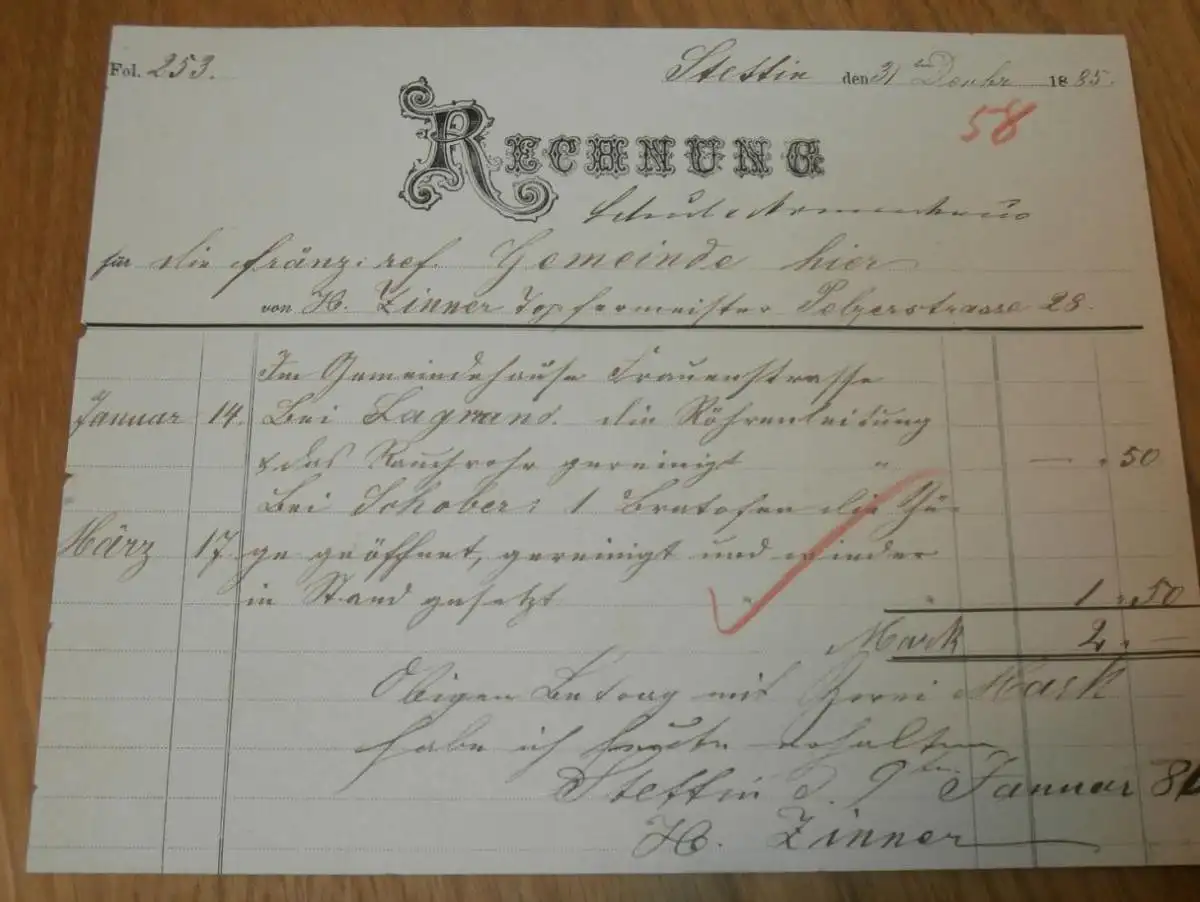 Fol. 253.
Stettin den 31ten Dembr 1885.
58
RECHNUNG
für die französ. ref. Gemeinde hier
von H. Zinner Topfermeister Pelzerstrasse 28.
Im Gemeindehause Frauenstrasse
Januar 14. Bei Lagrand. die Röhrenleitung
& das Rauchrohr gereinigt " — " 50
Bei Schober: 1 Bratofen die Zü-
März 17. ge geöffnet, gereinigt und wieder
in Stand gesetzt " " 1 " 50
Mark 2. —
Obigen Betrag mit Zwei Mark
habe ich heute erhalten
Stettin d. 9ten Januar 86
H. Zinner